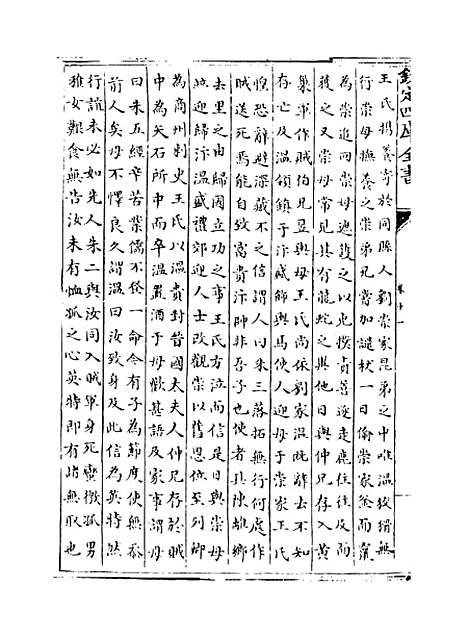 欽定四庫全書
卷十一
王氏攜養寄於同縣人劉崇家昆弟之中唯溫狡猾無
行崇母撫養之崇弟兄嘗加譴杖一日偷崇家釜而竄
為崇追回崇母遮護之以免撲責善逐走鹿往往及而
獲之又崇母常見其有龍蛇之異他日與仲兄存入黃
巢軍作賊伯兄昱與母王氏尚依劉家溫既辭去不知
存亡及溫領鎮于汴盛飾輿馬使人迎母于崇家王氏
惶恐辭避深藏不之信謂人曰朱三落拓無行何處作
賊送死焉能自致富貴汴帥非吾子也使者具陳離鄉
去里之由歸國立功之事王氏方泣而信是日與崇母
並迎歸汴溫盛禮郊迎人士改觀崇以舊恩位至列卿
為商州刺史王氏以溫貴封晉國太夫人仲兄存於賊
中為矢石所中而卒溫置酒于母歡甚語及家事謂母
曰朱五經辛苦業儒不登一命今有子為節度使無忝
前人矣母不懌良久謂溫曰汝致身及此信為英特然
行誼未必如先人朱二與汝同入賊軍身死蠻徼孤男
稚女艱食無告汝未有恤孤之心英特即有諸無取也